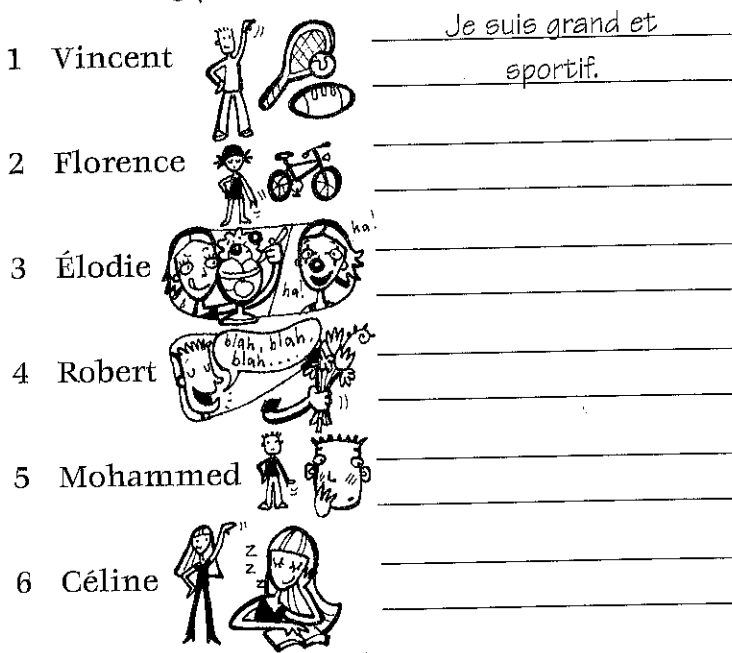 1 Vincent
Je suis grand et
sportif.
2 Florence
3 Élodie
ha!
ha!
4 Robert
blah, blah,
blah....
5 Mohammed
6 Céline
Z
Z
Z